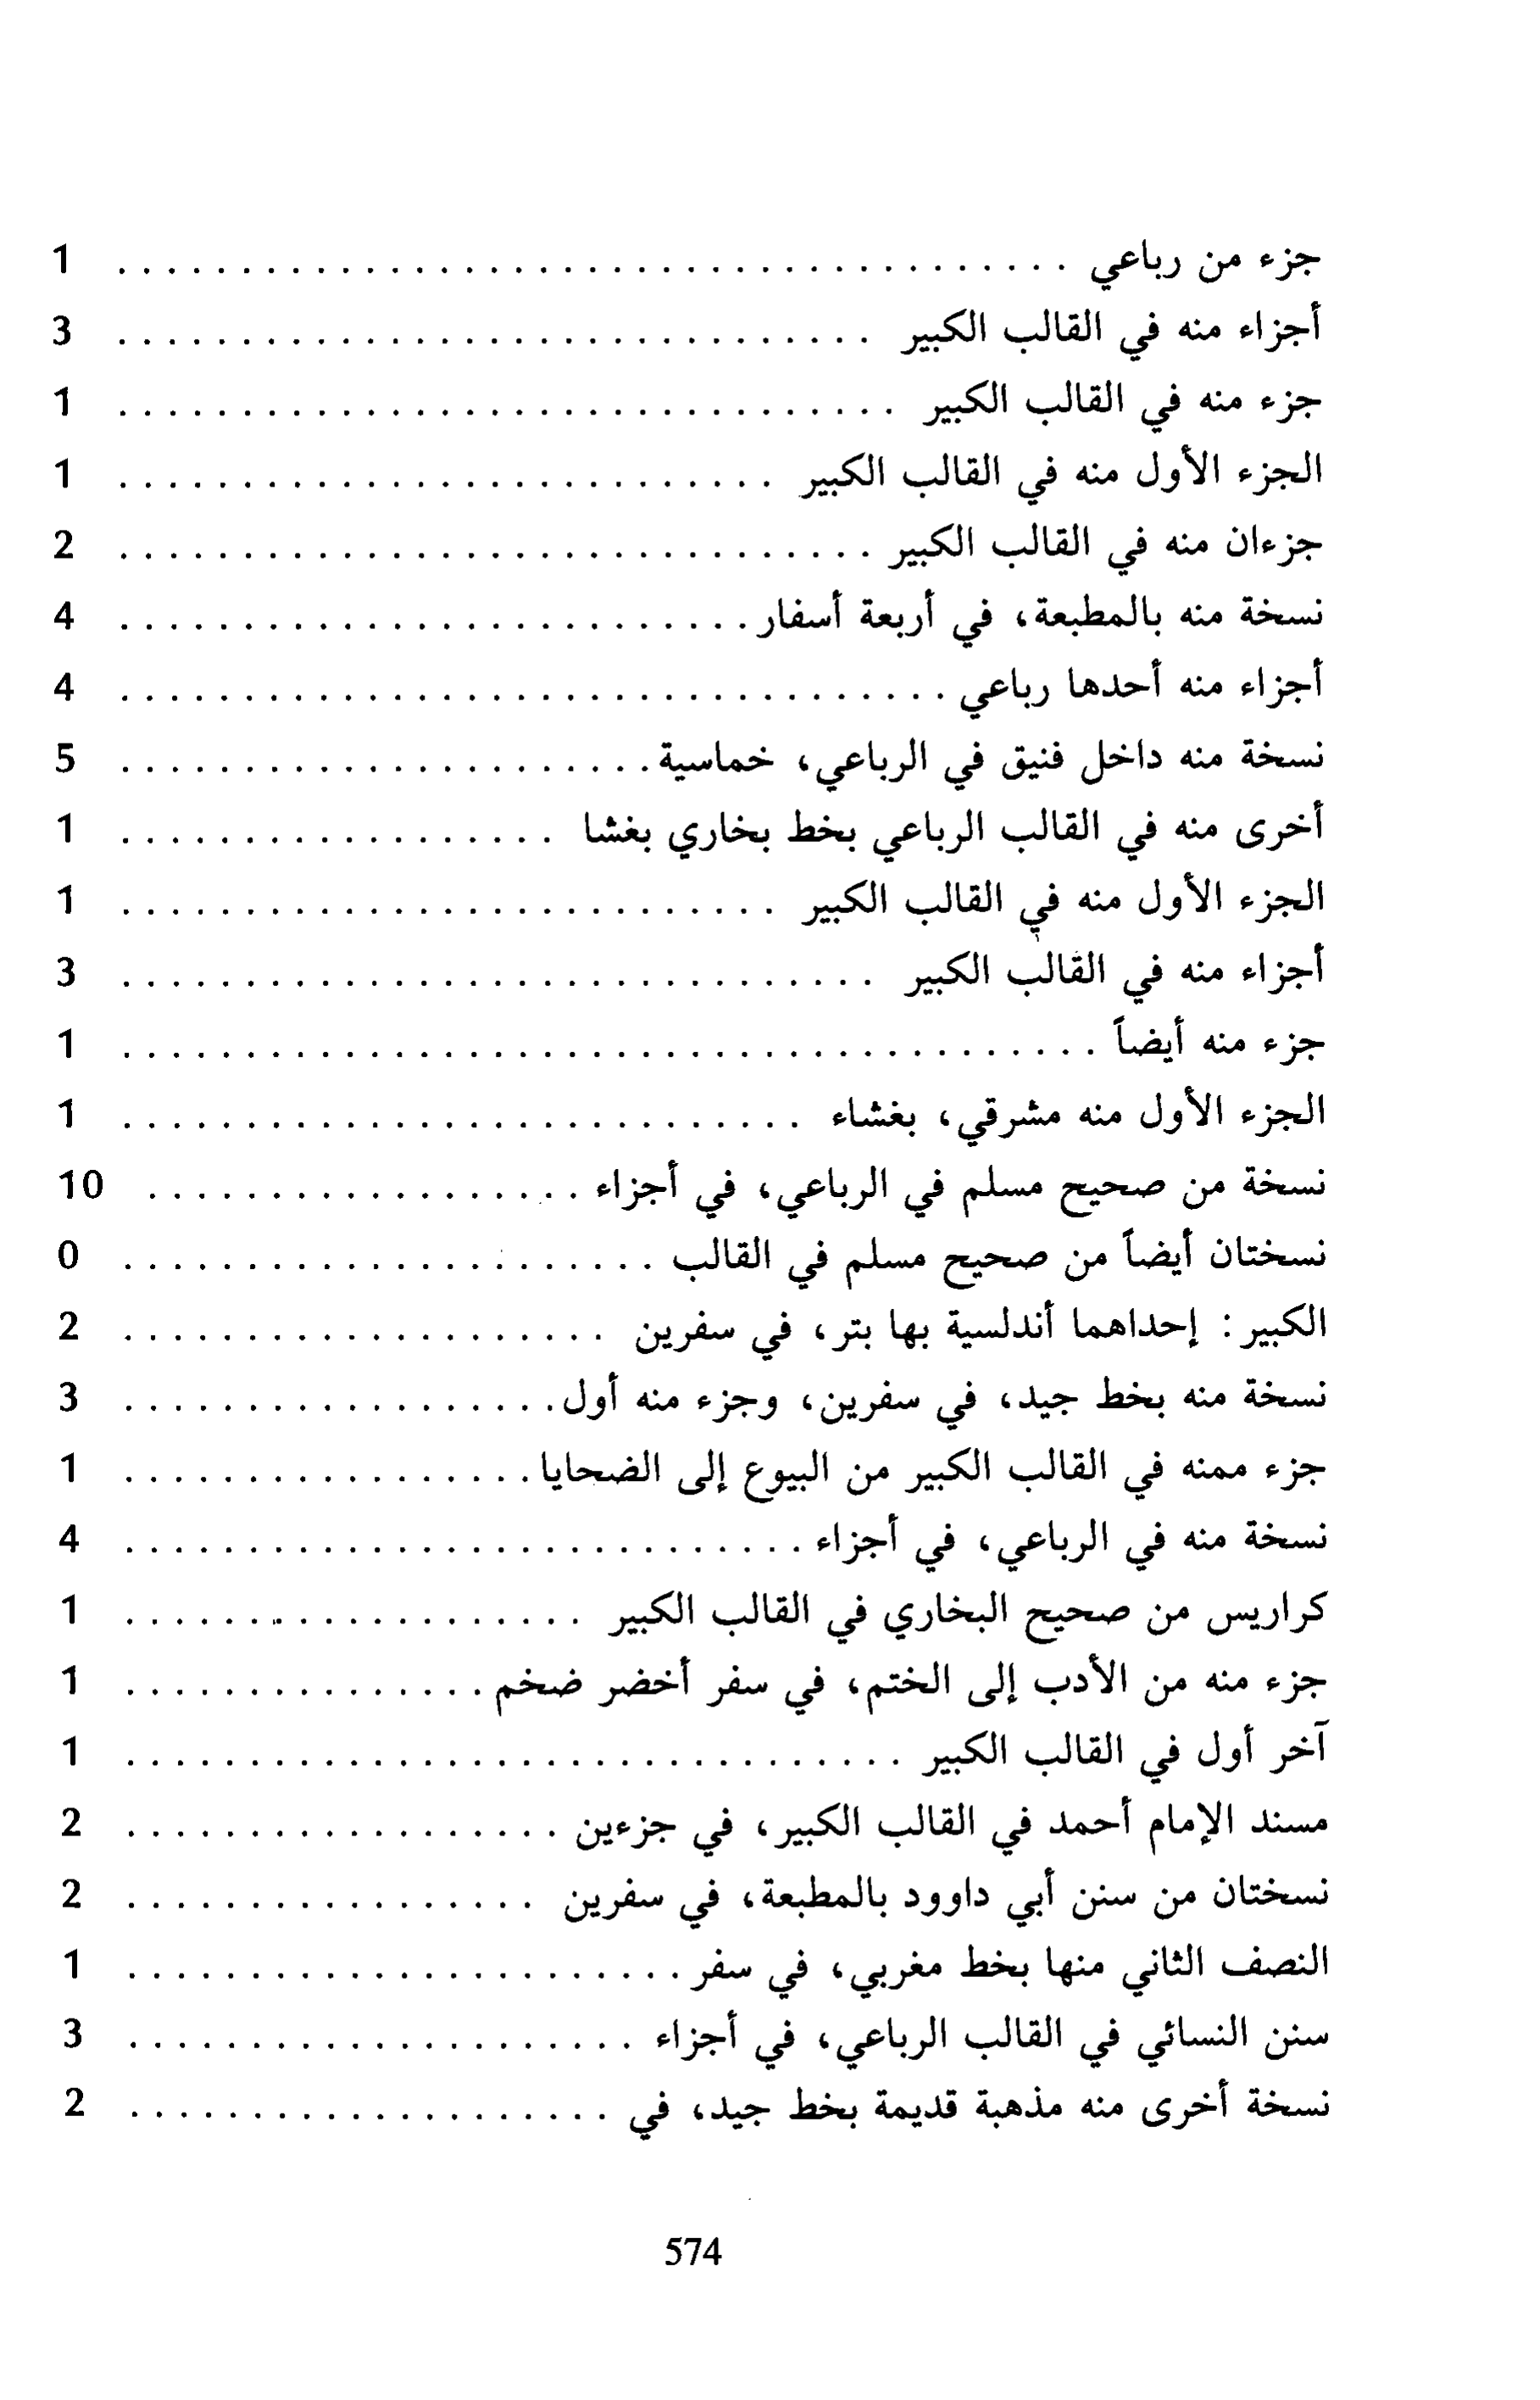 جزء من رباعي . . . . . . . . . . . . . . . . . . . . 1
أجزاء منه في القالب الكبير . . . . . . . . . . . . . . . . . . . . 3
جزء منه في القالب الكبير . . . . . . . . . . . . . . . . . . . . 1
الجزء الأول منه في القالب الكبير . . . . . . . . . . . . . . . . . . . . 1
جزءان منه في القالب الكبير . . . . . . . . . . . . . . . . . . . . 2
نسخة منه بالمطبعة، في أربعة أسفار . . . . . . . . . . . . . . . . . . . . 4
أجزاء منه أحدها رباعي . . . . . . . . . . . . . . . . . . . . 4
نسخة منه داخل فنيق في الرباعي، خماسية . . . . . . . . . . . . . . . . . . . . 5
أخرى منه في القالب الرباعي بخط بخاري بغشا . . . . . . . . . . . . . . . . . . 1
الجزء الأول منه في القالب الكبير . . . . . . . . . . . . . . . . . . . . 1
أجزاء منه في القالب الكبير . . . . . . . . . . . . . . . . . . . . 3
جزء منه أيضاً . . . . . . . . . . . . . . . . . . . . 1
الجزء الأول منه مشرقي، بغشاء . . . . . . . . . . . . . . . . . . . . 1
نسخة من صحيح مسلم في الرباعي، في أجزاء . . . . . . . . . . . . . . . . . . 10
نسختان أيضاً من صحيح مسلم في القالب . . . . . . . . . . . . . . . . . . . . 0
الكبير : إحداهما أندلسية بها بتر، في سفرين . . . . . . . . . . . . . . . . . . . . 2
نسخة منه بخط جيد، في سفرين، وجزء منه أول . . . . . . . . . . . . . . . . . . 3
جزء ممنه في القالب الكبير من البيوع إلى الضحايا . . . . . . . . . . . . . . . . . 1
نسخة منه في الرباعي، في أجزاء . . . . . . . . . . . . . . . . . . . . 4
كراريس من صحيح البخاري في القالب الكبير . . . . . . . . . . . . . . . . . . . 1
جزء منه من الأدب إلى الختم، في سفر أخضر ضخم . . . . . . . . . . . . . . . 1
آخر أول في القالب الكبير . . . . . . . . . . . . . . . . . . . . 1
مسند الإمام أحمد في القالب الكبير، في جزءين . . . . . . . . . . . . . . . . . . 2
نسختان من سنن أبي داوود بالمطبعة، في سفرين . . . . . . . . . . . . . . . . . 2
النصف الثاني منها بخط مغربي، في سفر . . . . . . . . . . . . . . . . . . . . 1
سنن النسائي في القالب الرباعي، في أجزاء . . . . . . . . . . . . . . . . . . . . 3
نسخة أخرى منه مذهبة قديمة بخط جيد، في . . . . . . . . . . . . . . . . . . . . 2
574